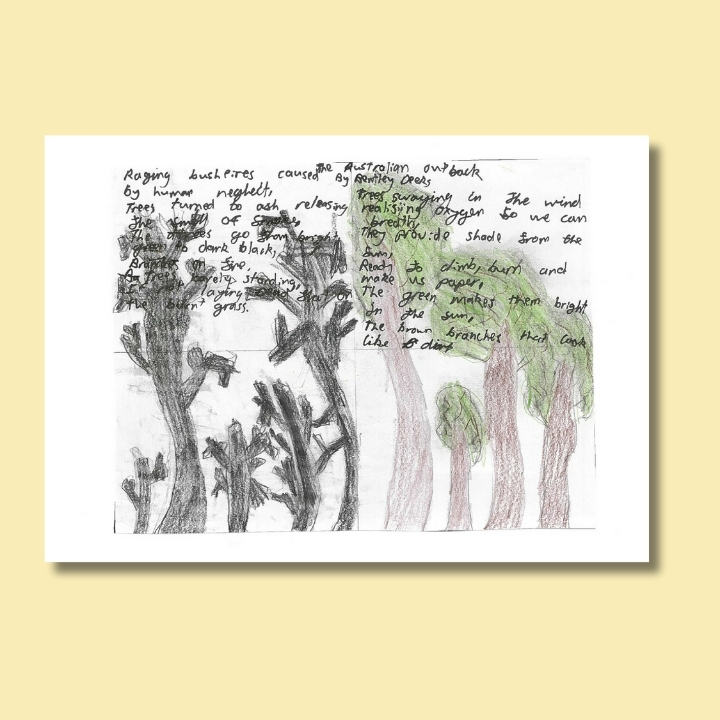 The Australian outback
By Bentley Deeks
Raging bushfires caused
by human neglect,
Trees turned to ash releasing
the smell of smoke,
The trees go from bright
green to dark black,
Branches on fire,
barely standing,
laying dead flat on
the burnt grass.
Trees swaying in the wind
realising oxygen so we can
breath,
They provide shade from the
sun,
Ready to climb, burn and
make us paper,
The green makes them bright
in the sun,
The brown branches that look
like dirt